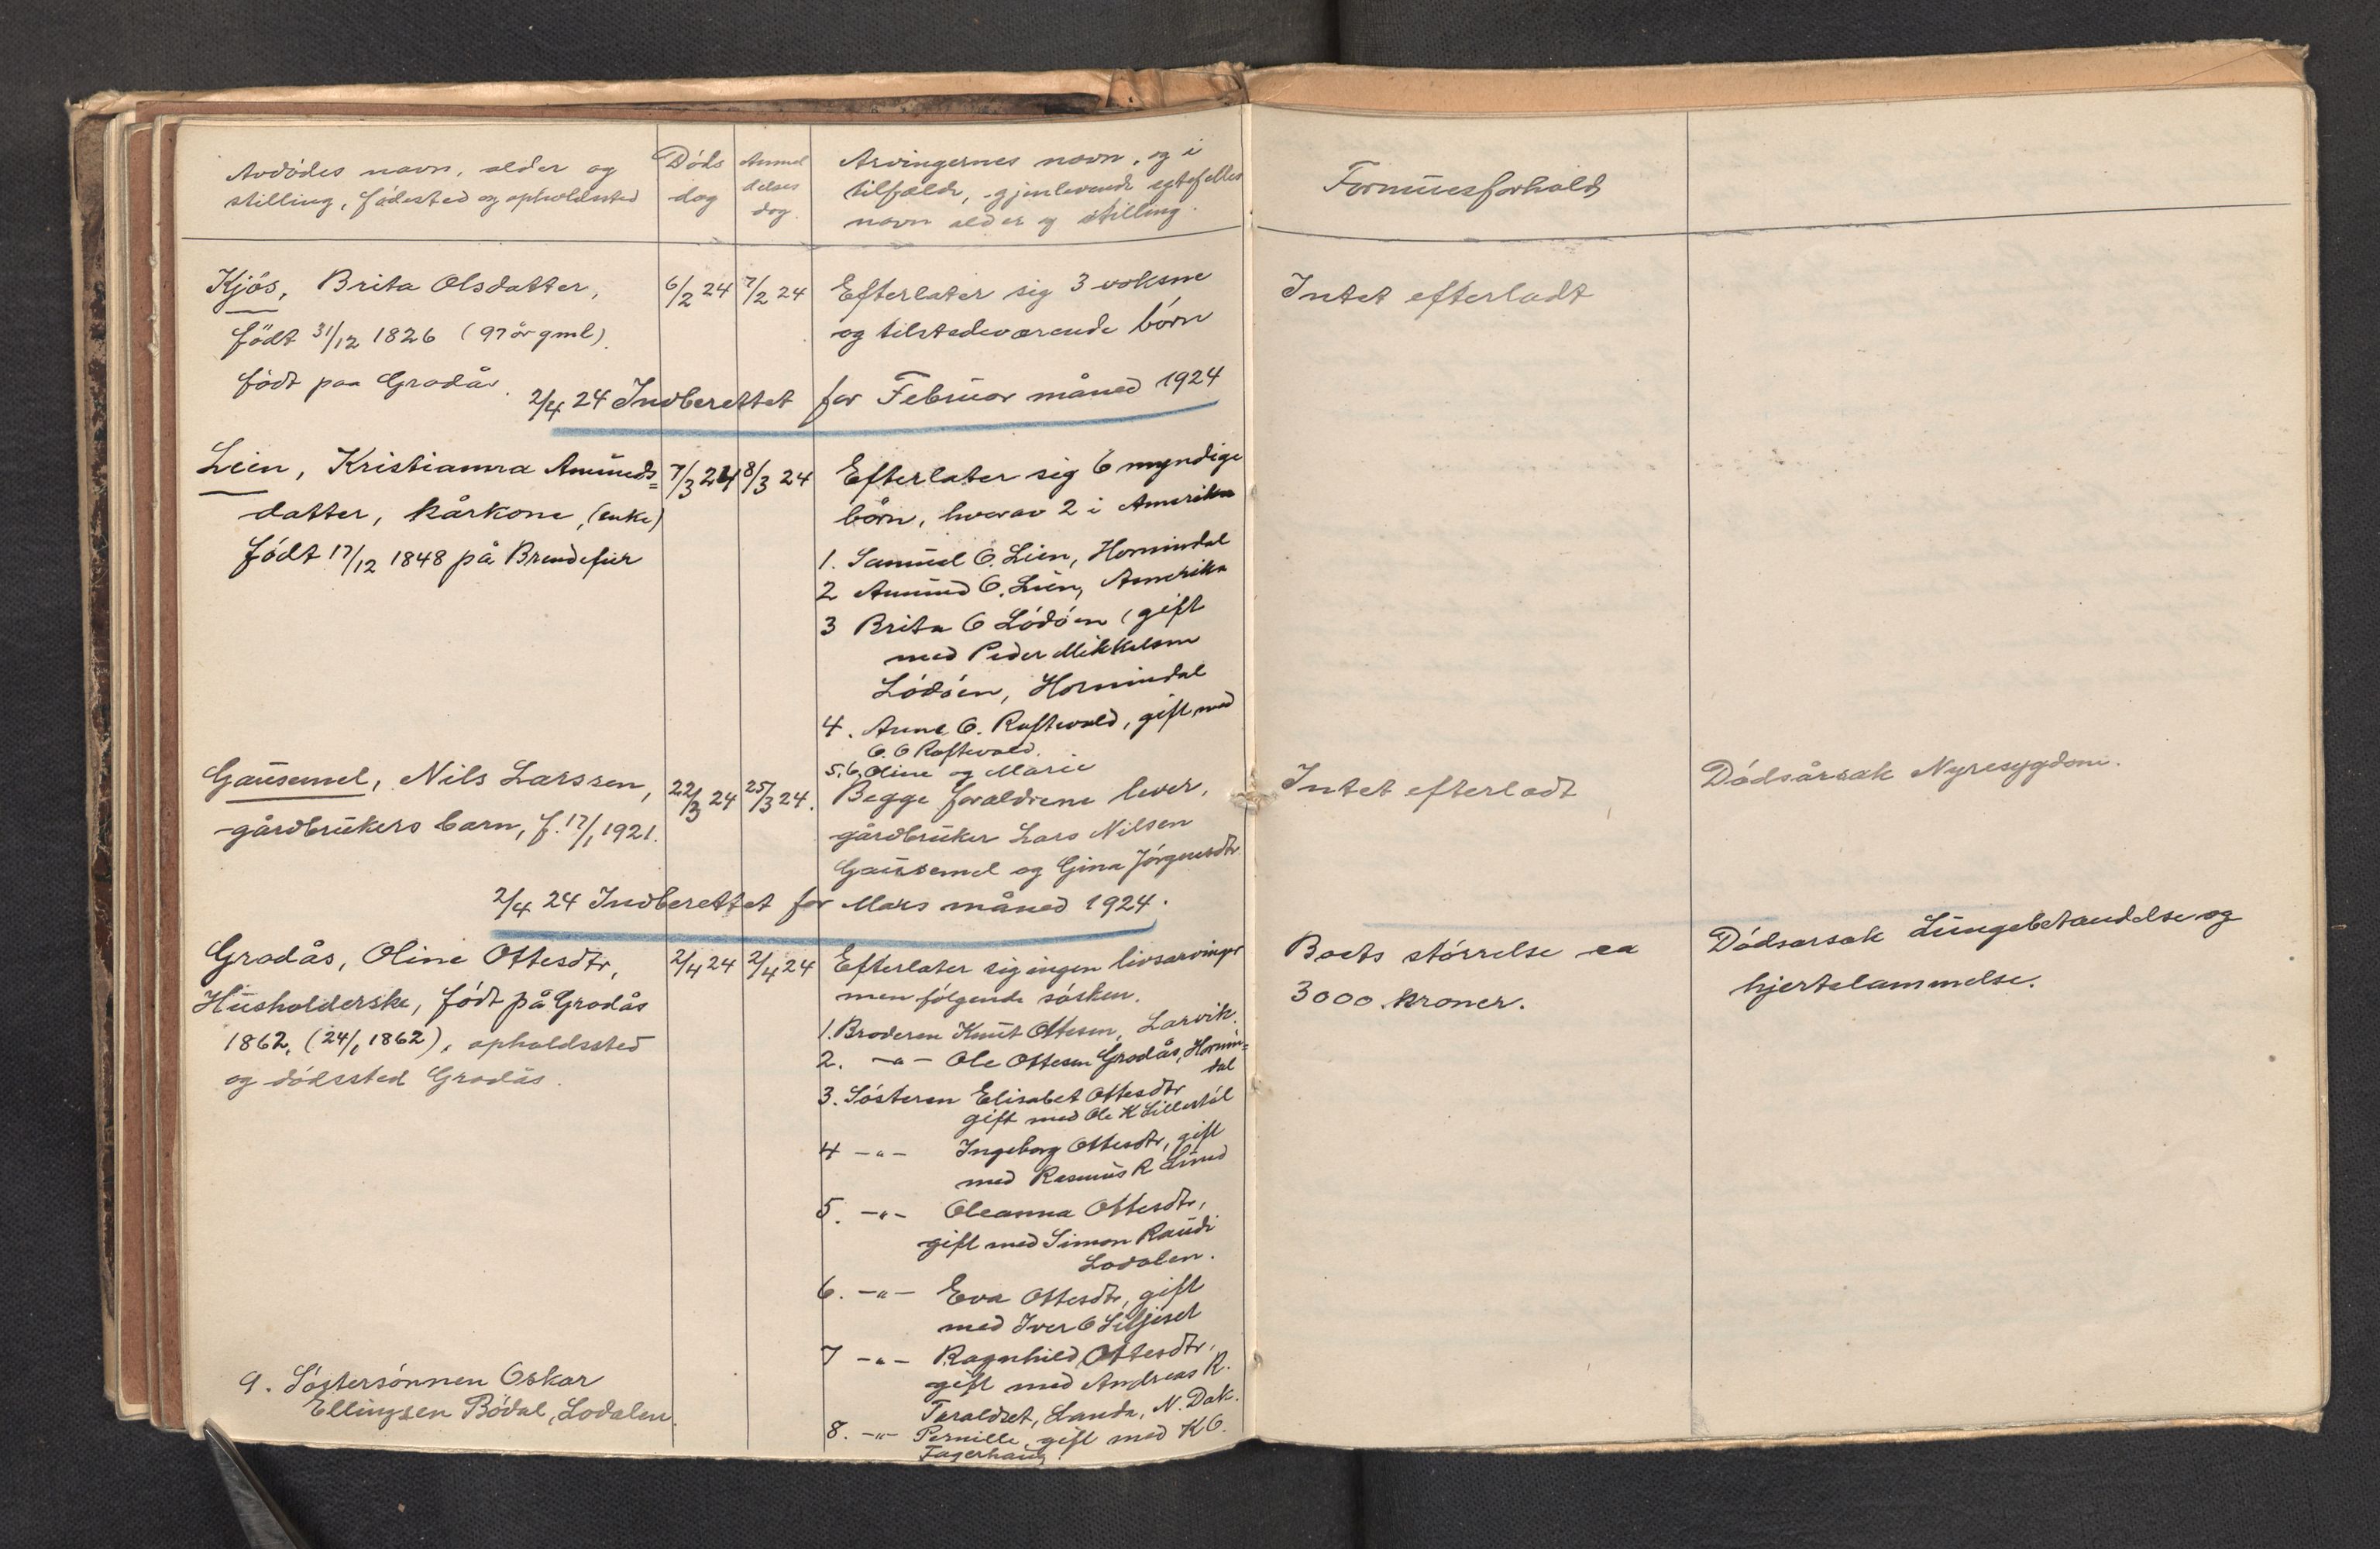 Avdødes navn, alder og
stilling, fødested og opholdssted
Døds
dag
Anmel
delses
dag.
Arvingernes navn, og i
tilfælde, gjenlevende egtefelles
navn alder og stilling.
Formuesforhold
Kjøs, Brita Olsdatter,
født 31/12 1826 (97 år gml)
født paa Grodås.
6/2 24
7/2 24
Efterlater sig 3 voksne
og tilstedeværende børn
Intet efterladt
2/4 24 Indberettet for Februar måned 1924
Lien, Kristianna Amunds=
datter, kårkone, (enke)
født 17/12 1848 på Brendefur
7/3 24
8/3 24
Efterlater sig 6 myndige
børn, hvorav 2 i Amerika
1. Samuel O. Lien, Hornindal
2 Amund O. Lien, Amerika
3 Brita O Lødøen (gift
med Peder Mikkelsen
Lødøen, Hornindal
4. Anne O. Raftevold, gift med
O. O Raftevold.
5,6, Oline og Marie
Gausemel, Nils Larssen,
gårdbrukers barn, f. 17/1 1921.
22/3 24
25/3 24.
Begge forældrene lever,
gårdbruker Lars Nilsen
Gausemel og Gina Jørgensdtr.
Intet efterladt
Dødsårsak Nyresygdom.
2/4 24 Indberettet for Mars måned 1924.
Grodås, Oline Ottesdtr,
Husholderske, født på Grodås
1862, (24/1 1862), opholdssted
og dødssted Grodås.
2/4 24
2/4 24
Efterlater sig ingen livsarvinger
men følgende søsken.
1. Broderen Knut Ottesen, Larvik.
2. -"- Ole Ottesen Grodås, Hornin=
dal
3. Søsteren Elisabet Ottesdtr
gift med Ole K Lillestøl
4 -"- Ingeborg Ottesdtr, gift
med Rasmus R Lund
5. -"- Oleanna Ottesdtr,
gift med Simon Raudi
Lodalen.
6. -"- Eva Ottesdtr, gift
med Iver O Seljeset
7 -"- Ragnhild Ottesdtr,
gift med Andreas R.
Taraldset, Landa, N. Dak.
8. -"- Pernille gift med K O.
Fagerhaug
9. Søstersønnen Oskar
Ellingsen Bødal, Lodalen.
Boets størrelse ca
3000 kroner.
Dødsarsak Lungebetændelse og
hjertelammelse.